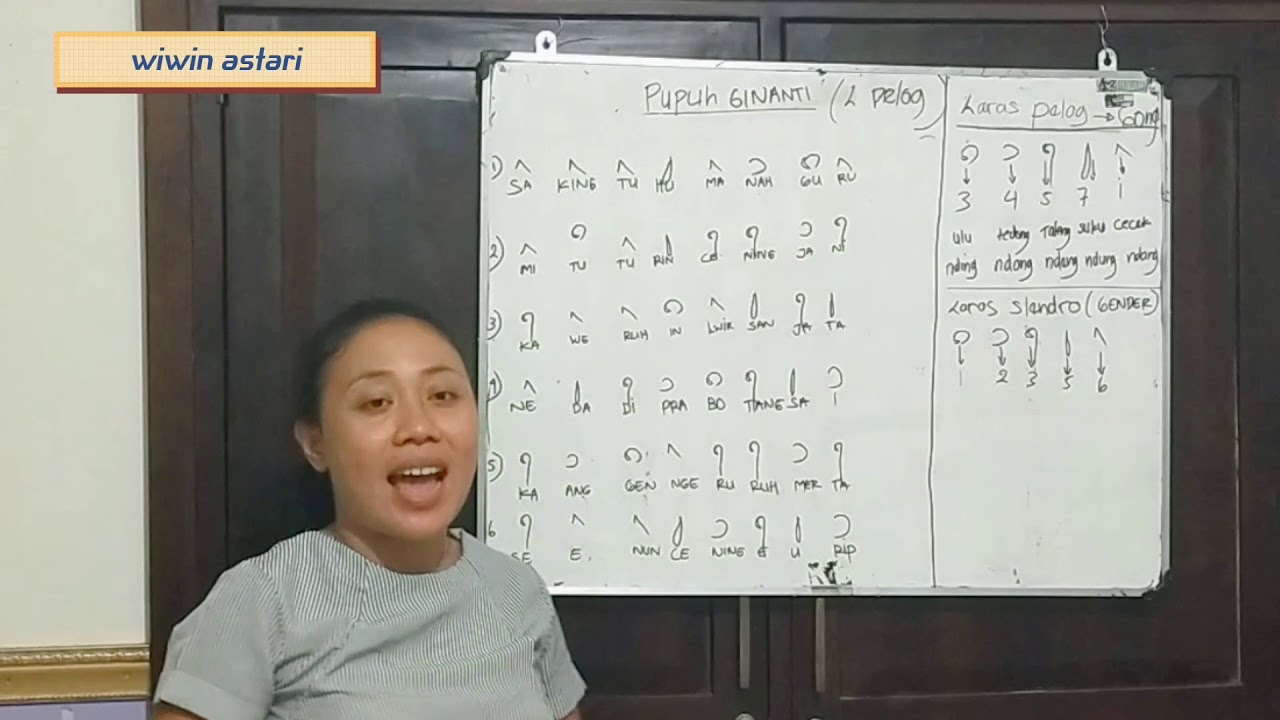 wiwin astari
Pupuh GINANTI (L pelog)
1) SA KING TU HU MA NAH GU RU
2) MI TU TU RIN CE NING JA NI
3) KA WE RUH IN LWIR SAN JA TA
4) NE DA DI PRA BO TANG SA I
5) KA ANG GEN NGE RU RUH MER TA
6 SE E. NUN CE NING E U RIP
Laras pelog → Gong
3 4 5 7 1
ulu tedong Taleng suku cecek
nding ndong ndeng ndung ndang
Laras Slendro (GENDER)
1 2 3 5 6